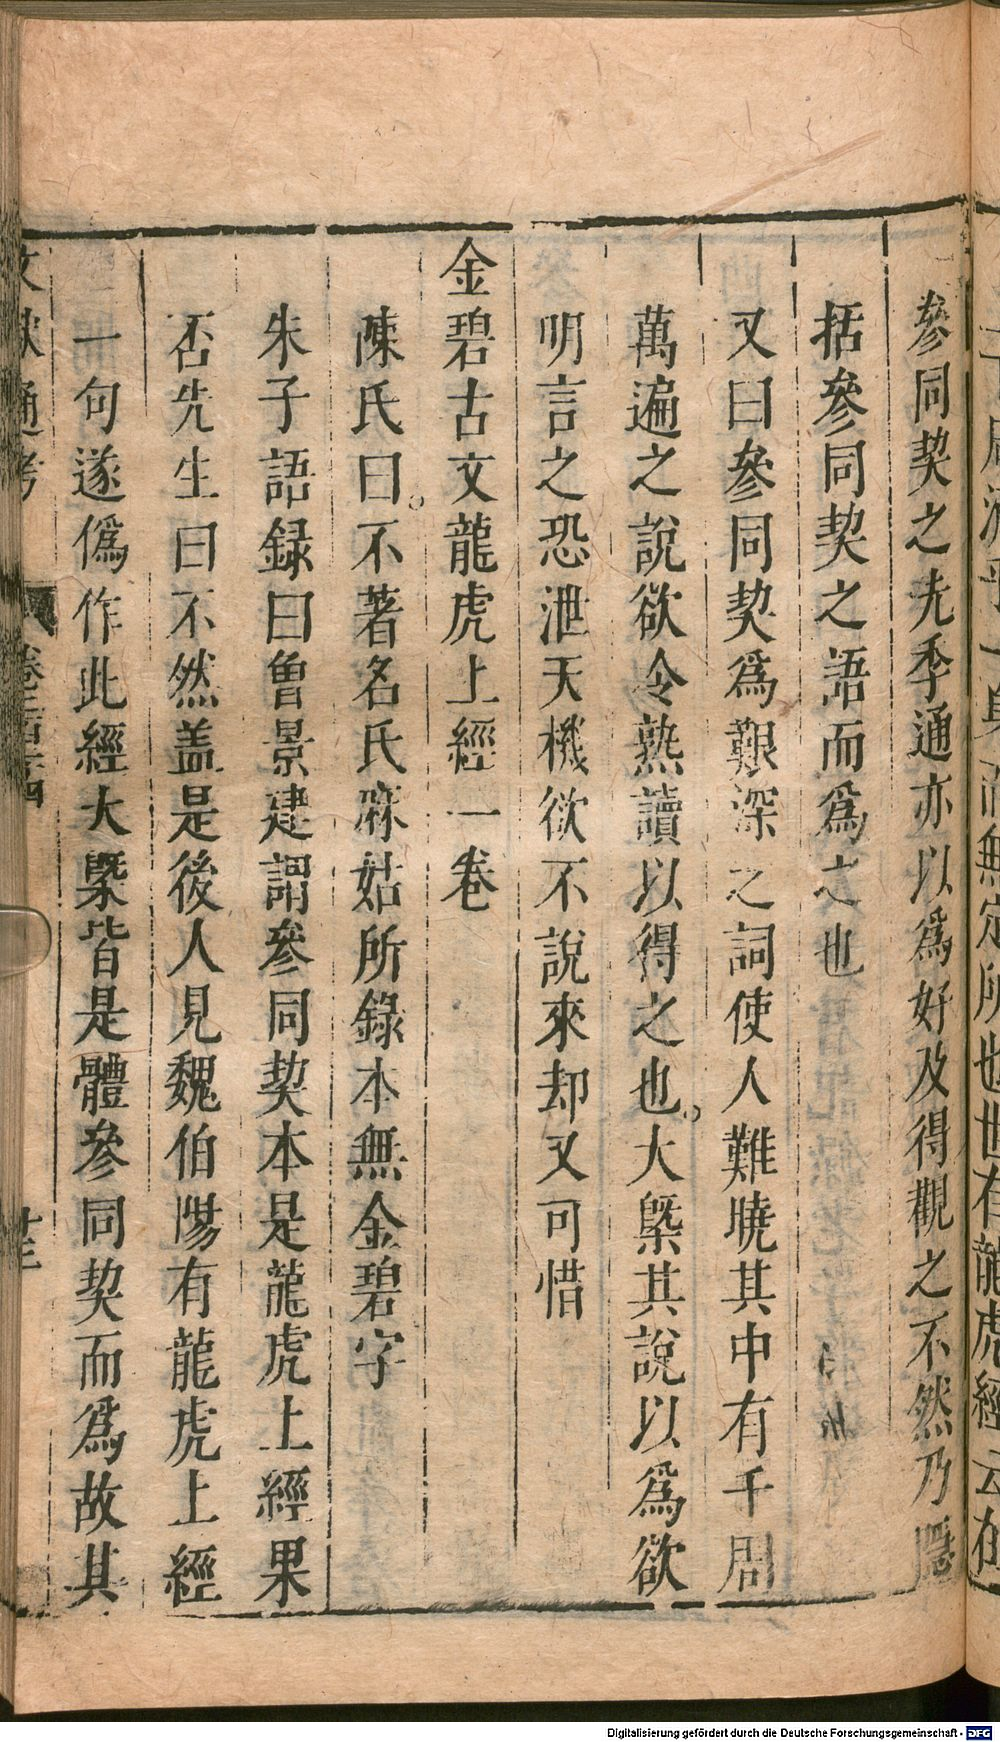 參同契之先季通亦以爲好及得觀之不然乃隱
括參同契之語而爲之也
又曰參同契爲艱深之詞使人難曉其中有千周
萬遍之說欲令熟讀以得之也大槩其說以爲欲
明言之恐泄天機欲不說來却又可惜
金碧古文龍虎上經一卷
陳氏曰不著名氏麻姑所錄本無金碧字
朱子語録曰曾景建謂參同契本是龍虎上經果
否先生曰不然盖是後人見魏伯陽有龍虎上經
一句遂僞作此經大槩皆是體參同契而爲故其
文獻通考
卷二百二十四
廿三
無定所也世有龍虎經云在
Digitalisierung gefördert durch die Deutsche Forschungsgemeinschaft - DFG